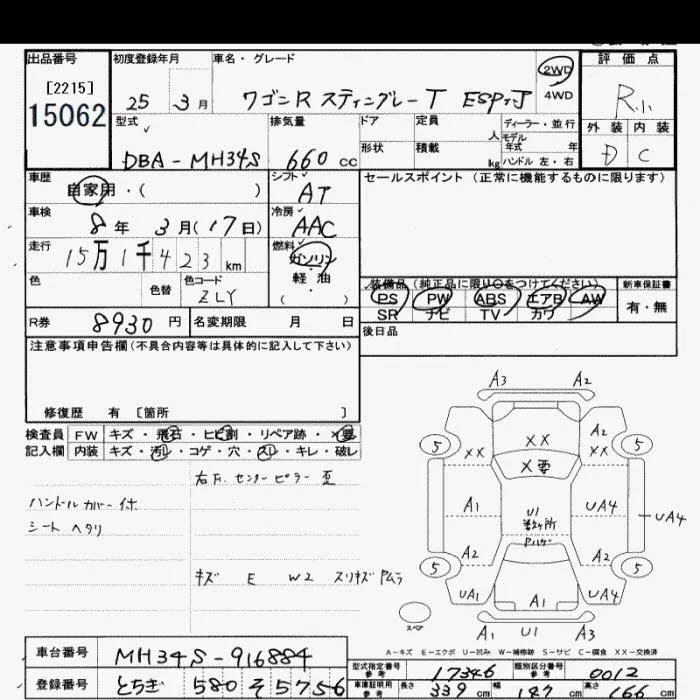 出品番号 初度登録年月 車名・グレード 2WD 評価点
[2215]
15062
25 3月 ワゴンR スティングレーT ESPナシ 4WD R小
型式 排気量 ドア 定員 ディーラー・並行 外装 内装
人 モデル年式 年
DBA-MH34S 660cc 形状 積載 kg ハンドル 左・右 D C
車歴 自家用・( ) シフト AT セールスポイント(正常に機能するものに限ります)
車検 8年 3月(17日) 冷房 AAC
走行 15万1千423km 燃料 ガソリン
軽油
色 色替 色コード ZLY ( )
装備品(純正品に限り○をつけてください) 新車保証書
PS PW ABS エアB AW 有・無
SR ナビ TV カワ
R券 8930円 名変期限 月 日 後日品
注意事項申告欄(不具合内容等は具体的に記入して下さい)
修復歴 有 [箇所 ]
検査員 FW キズ・飛石・ヒビ割・リペア跡・X要
記入欄 内装 キズ・汚レ・コゲ・穴・スレ・キレ・破レ
ハンドルカバー付
シート ヘタリ
キズ E W2 スリキズ
A3 A2
5 XX XX A2 XX 5
X要
A1 U1 UA4 UA4
A2 A2
5 5
UA1 A1 UA4
スペア A1 U1 A3
A-キズ E-エクボ U-凹み W-補修跡 S-サビ C-腐食 XX-交換済
車台番号 MH34S-916884
登録番号 とちぎ 580 そ 5756
型式指定番号 参考 17346 類別区分番号 参考 0012
車庫証明用 参考 長さ 339cm 幅 147cm 高さ 166cm